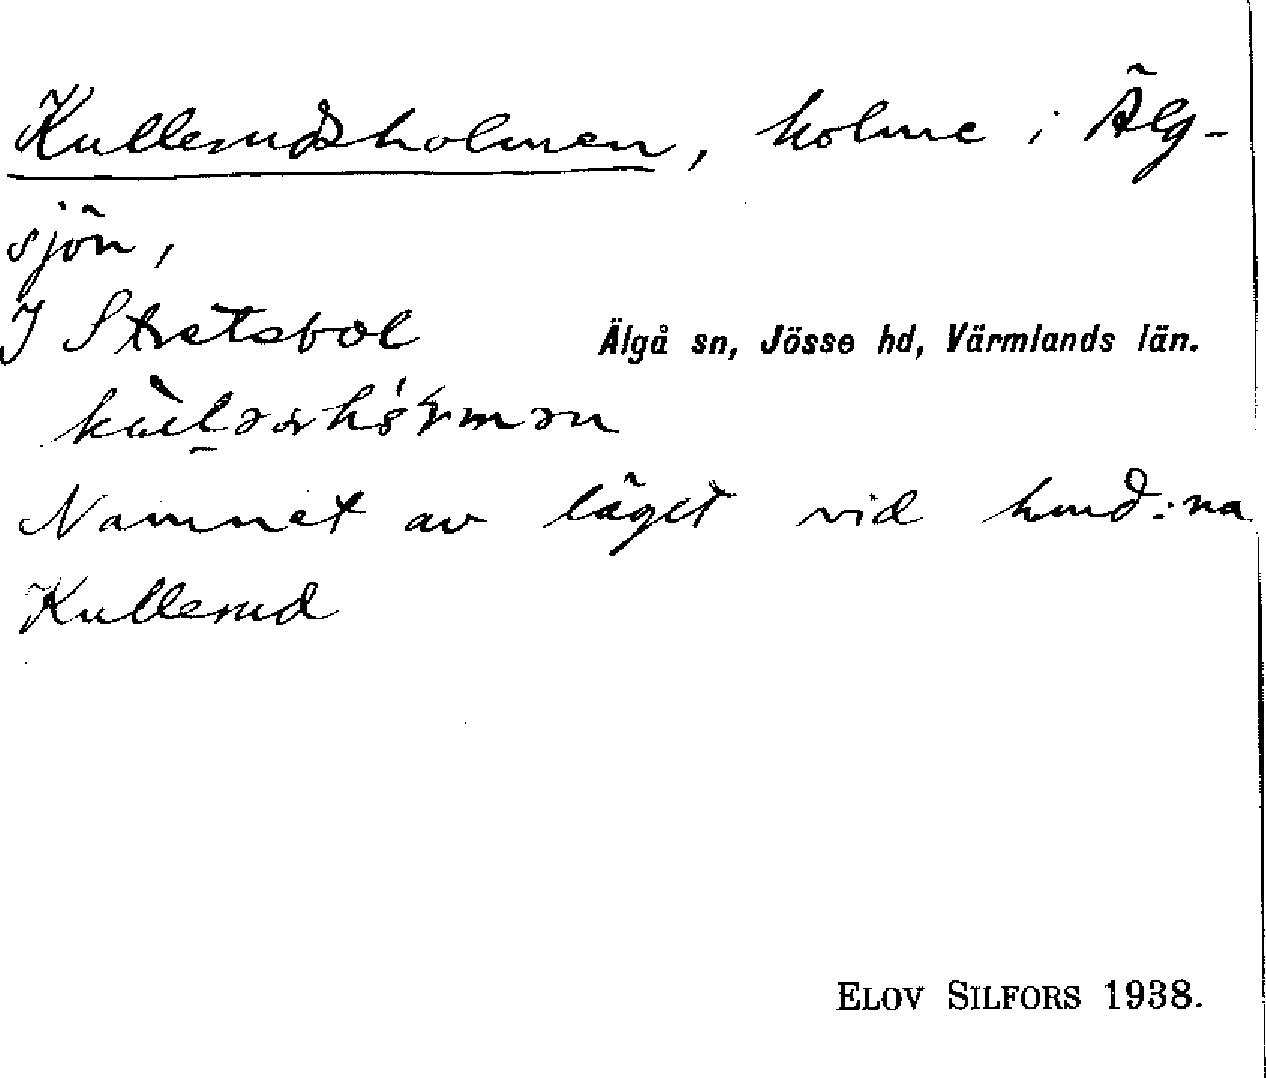 Kullerudsholmen, holme i Älg-
sjön,
I Stretsbol
Älgå sn, Jösse hd, Värmlands län.
Namnet av läget vid hmd:na
Kullerud
ELOV SILFORS 1938.